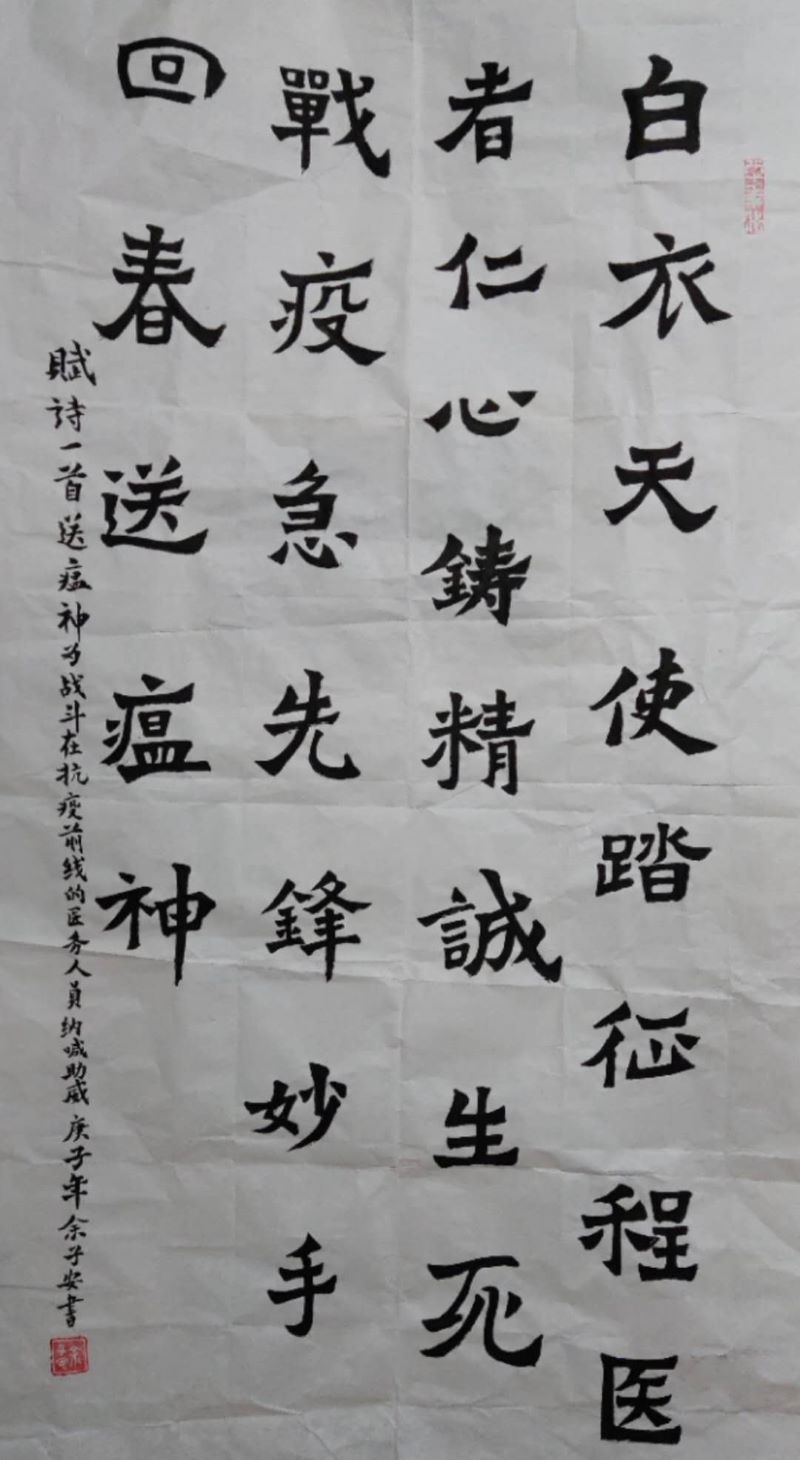 白衣天使踏征程医
者仁心鋳精誠生死
戰疫急先鋒妙手
回春送瘟神
賦詩一首送瘟神为战斗在抗疫前线的医务人員纳喊助威庚子年余子安書